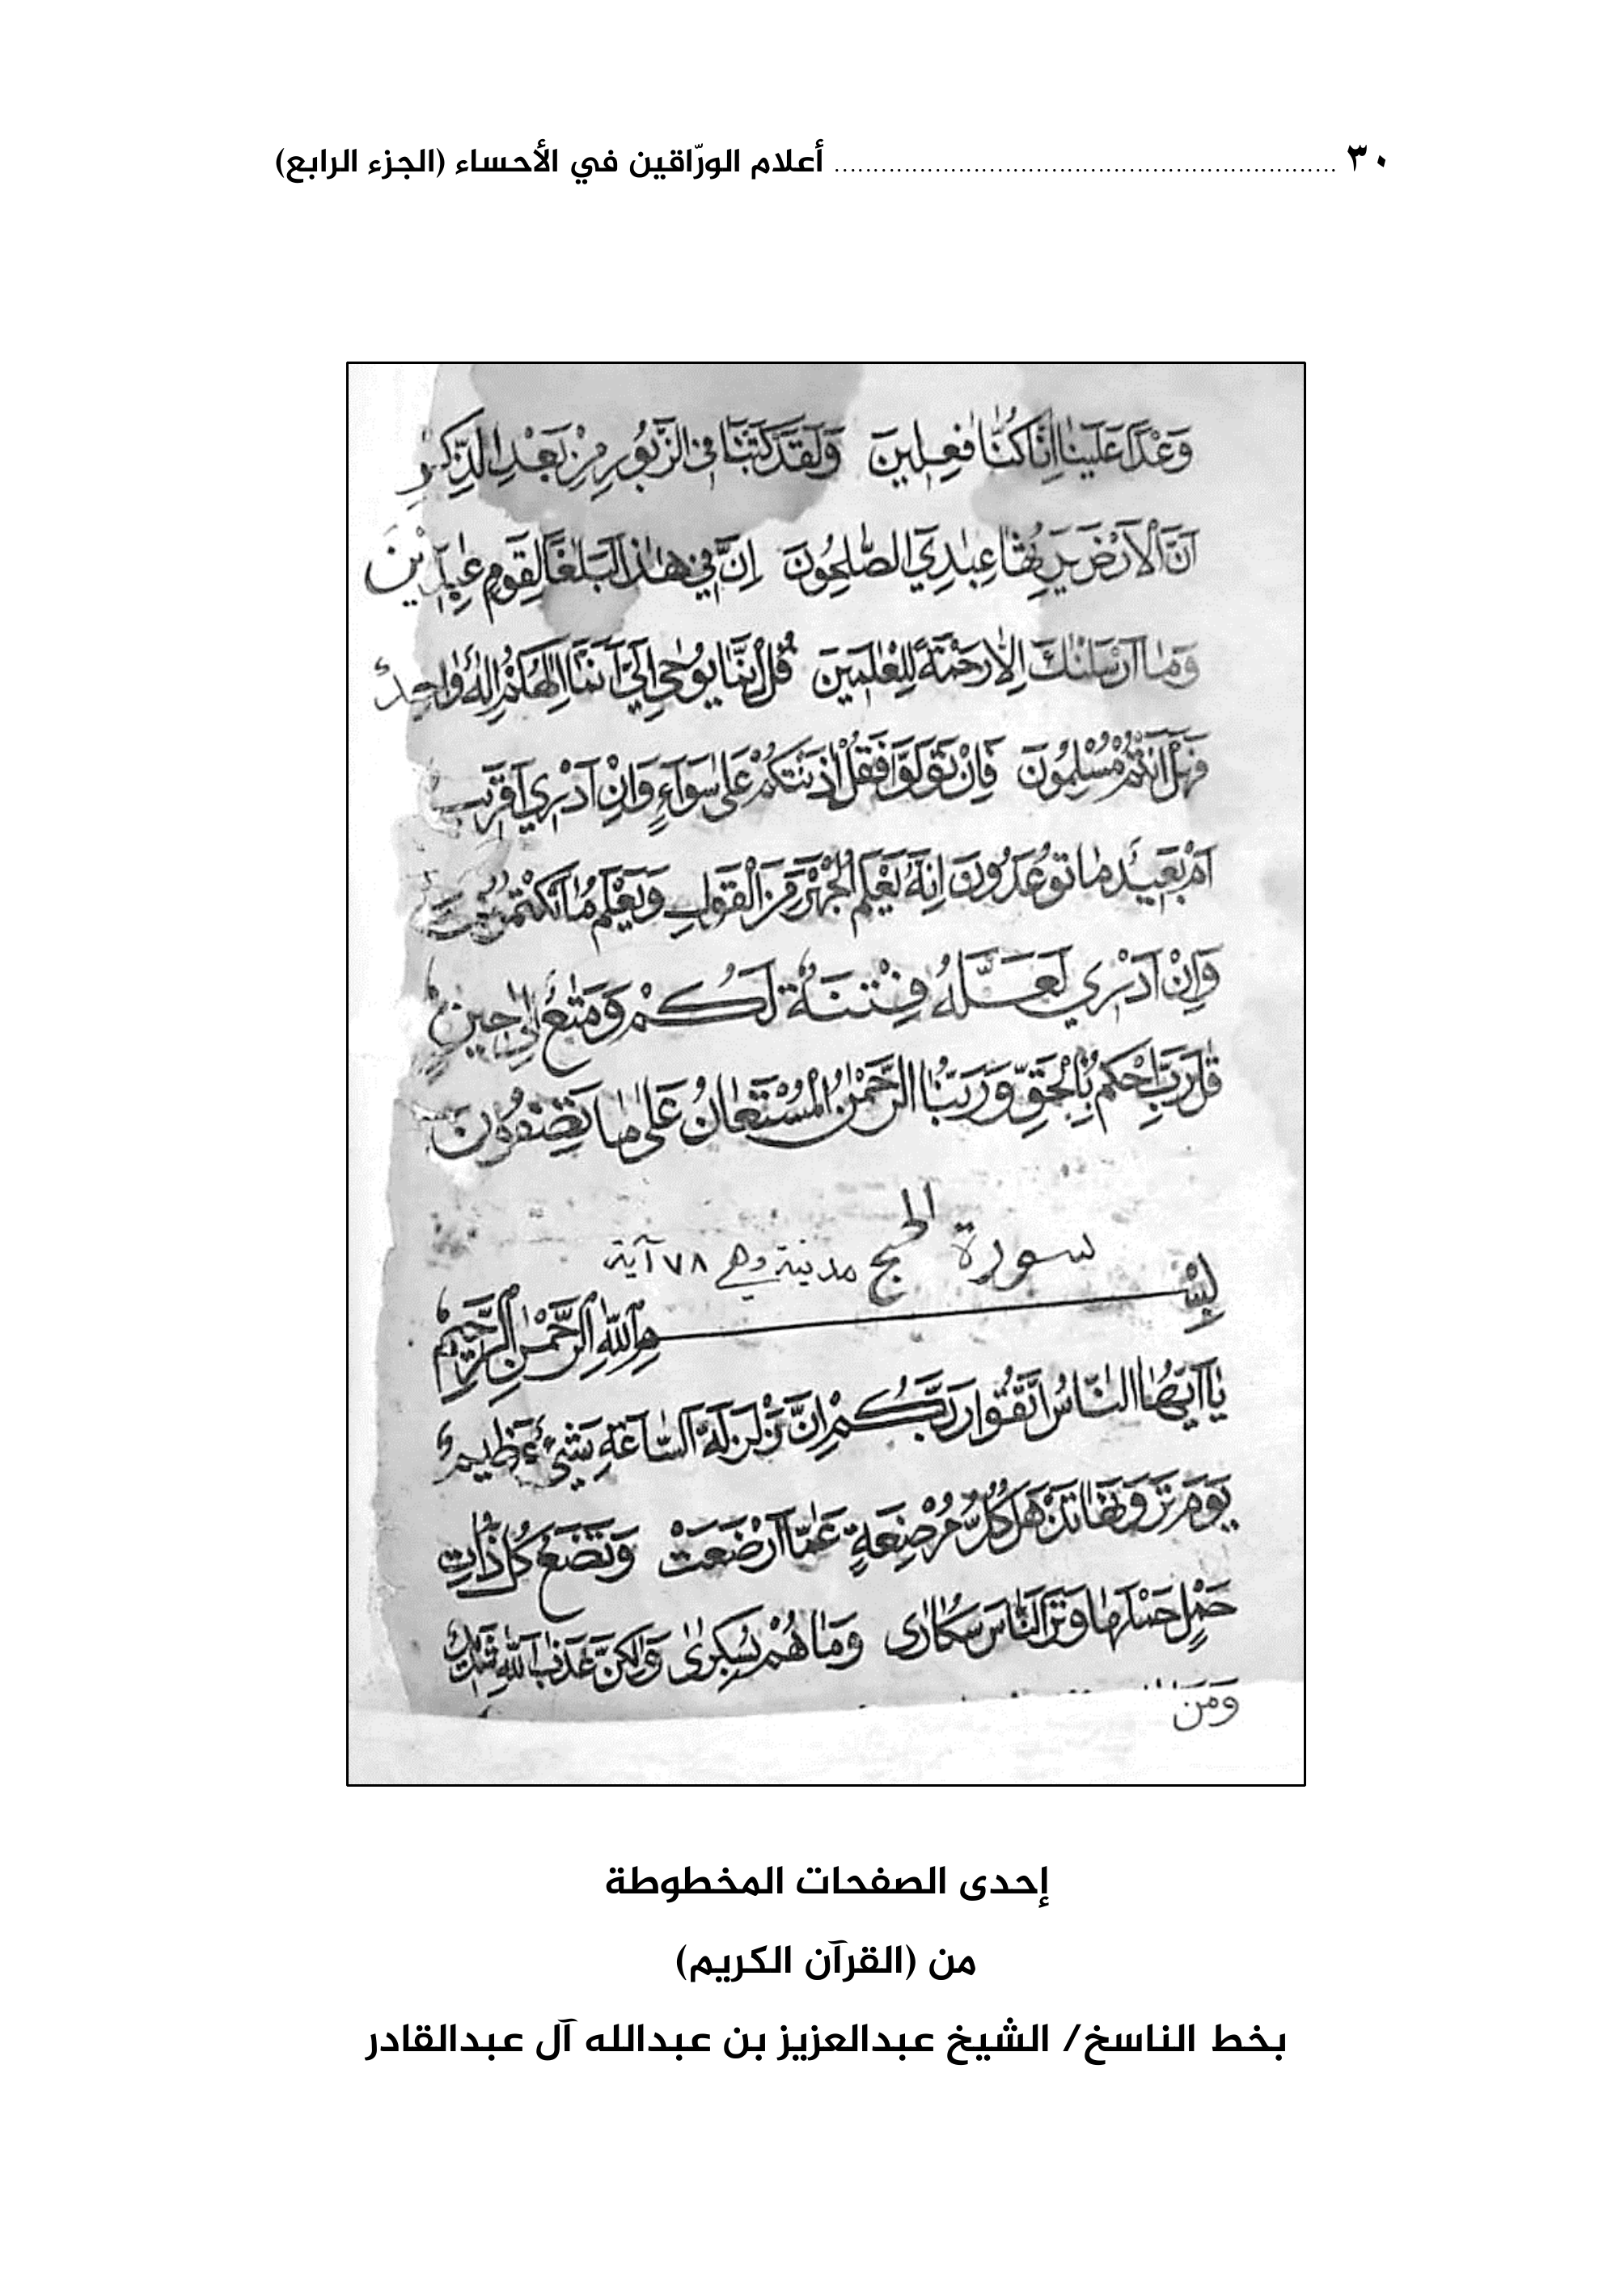 ٣٠ ........ أعلام الورّاقين في الأحساء (الجزء الرابع)
وَعْدًا عَلَيْنَا اِنَّا كُنَّا فٰعِلِينَ وَلَقَدْ كَتَبْنَا فِي الزَّبُورِ مِنْ بَعْدِ الذِّكْرِ
اَنَّ الْاَرْضَ يَرِثُهَا عِبَادِيَ الصّٰلِحُونَ اِنَّ فِي هٰذَا لَبَلٰغًا لِقَوْمٍ عٰبِدِينَ
وَمَا اَرْسَلْنٰكَ اِلَّا رَحْمَةً لِلْعٰلَمِينَ قُلْ اِنَّمَا يُوحٰى اِلَيَّ اَنَّمَا اِلٰهُكُمْ اِلٰهٌ وٰاحِدٌ
فَهَلْ اَنْتُمْ مُسْلِمُونَ فَاِنْ تَوَلَّوْا فَقُلْ اٰذَنْتُكُمْ عَلٰى سَوَآءٍ وَاِنْ اَدْرِي اَقَرِيبٌ
اَمْ بَعِيدٌ مَا تُوعَدُونَ اِنَّهُ يَعْلَمُ الْجَهْرَ مِنَ الْقَوْلِ وَيَعْلَمُ مَا تَكْتُمُونَ
وَاِنْ اَدْرِي لَعَلَّهُ فِتْنَةٌ لَكُمْ وَمَتٰعٌ اِلٰى حِينٍ
قٰلَ رَبِّ احْكُمْ بِالْحَقِّ وَرَبُّنَا الرَّحْمٰنُ الْمُسْتَعَانُ عَلٰى مَا تَصِفُونَ
سورة الحج مدنية وهي ٧٨ آية
بِسْمِ اللّٰهِ الرَّحْمٰنِ الرَّحِيمِ
يَا اَيُّهَا النَّاسُ اتَّقُوا رَبَّكُمْ اِنَّ زَلْزَلَةَ السَّاعَةِ شَيْءٌ عَظِيمٌ
يَوْمَ تَرَوْنَهَا تَذْهَلُ كُلُّ مُرْضِعَةٍ عَمَّا اَرْضَعَتْ وَتَضَعُ كُلُّ ذَاتِ
حَمْلٍ حَمْلَهَا وَتَرَى النَّاسَ سُكَارٰى وَمَا هُمْ بِسُكٰرٰى وَلٰكِنَّ عَذَابَ اللّٰهِ شَدِيدٌ
وَمِنَ
إحدى الصفحات المخطوطة
من (القرآن الكريم)
بخط الناسخ/ الشيخ عبدالعزيز بن عبدالله آل عبدالقادر